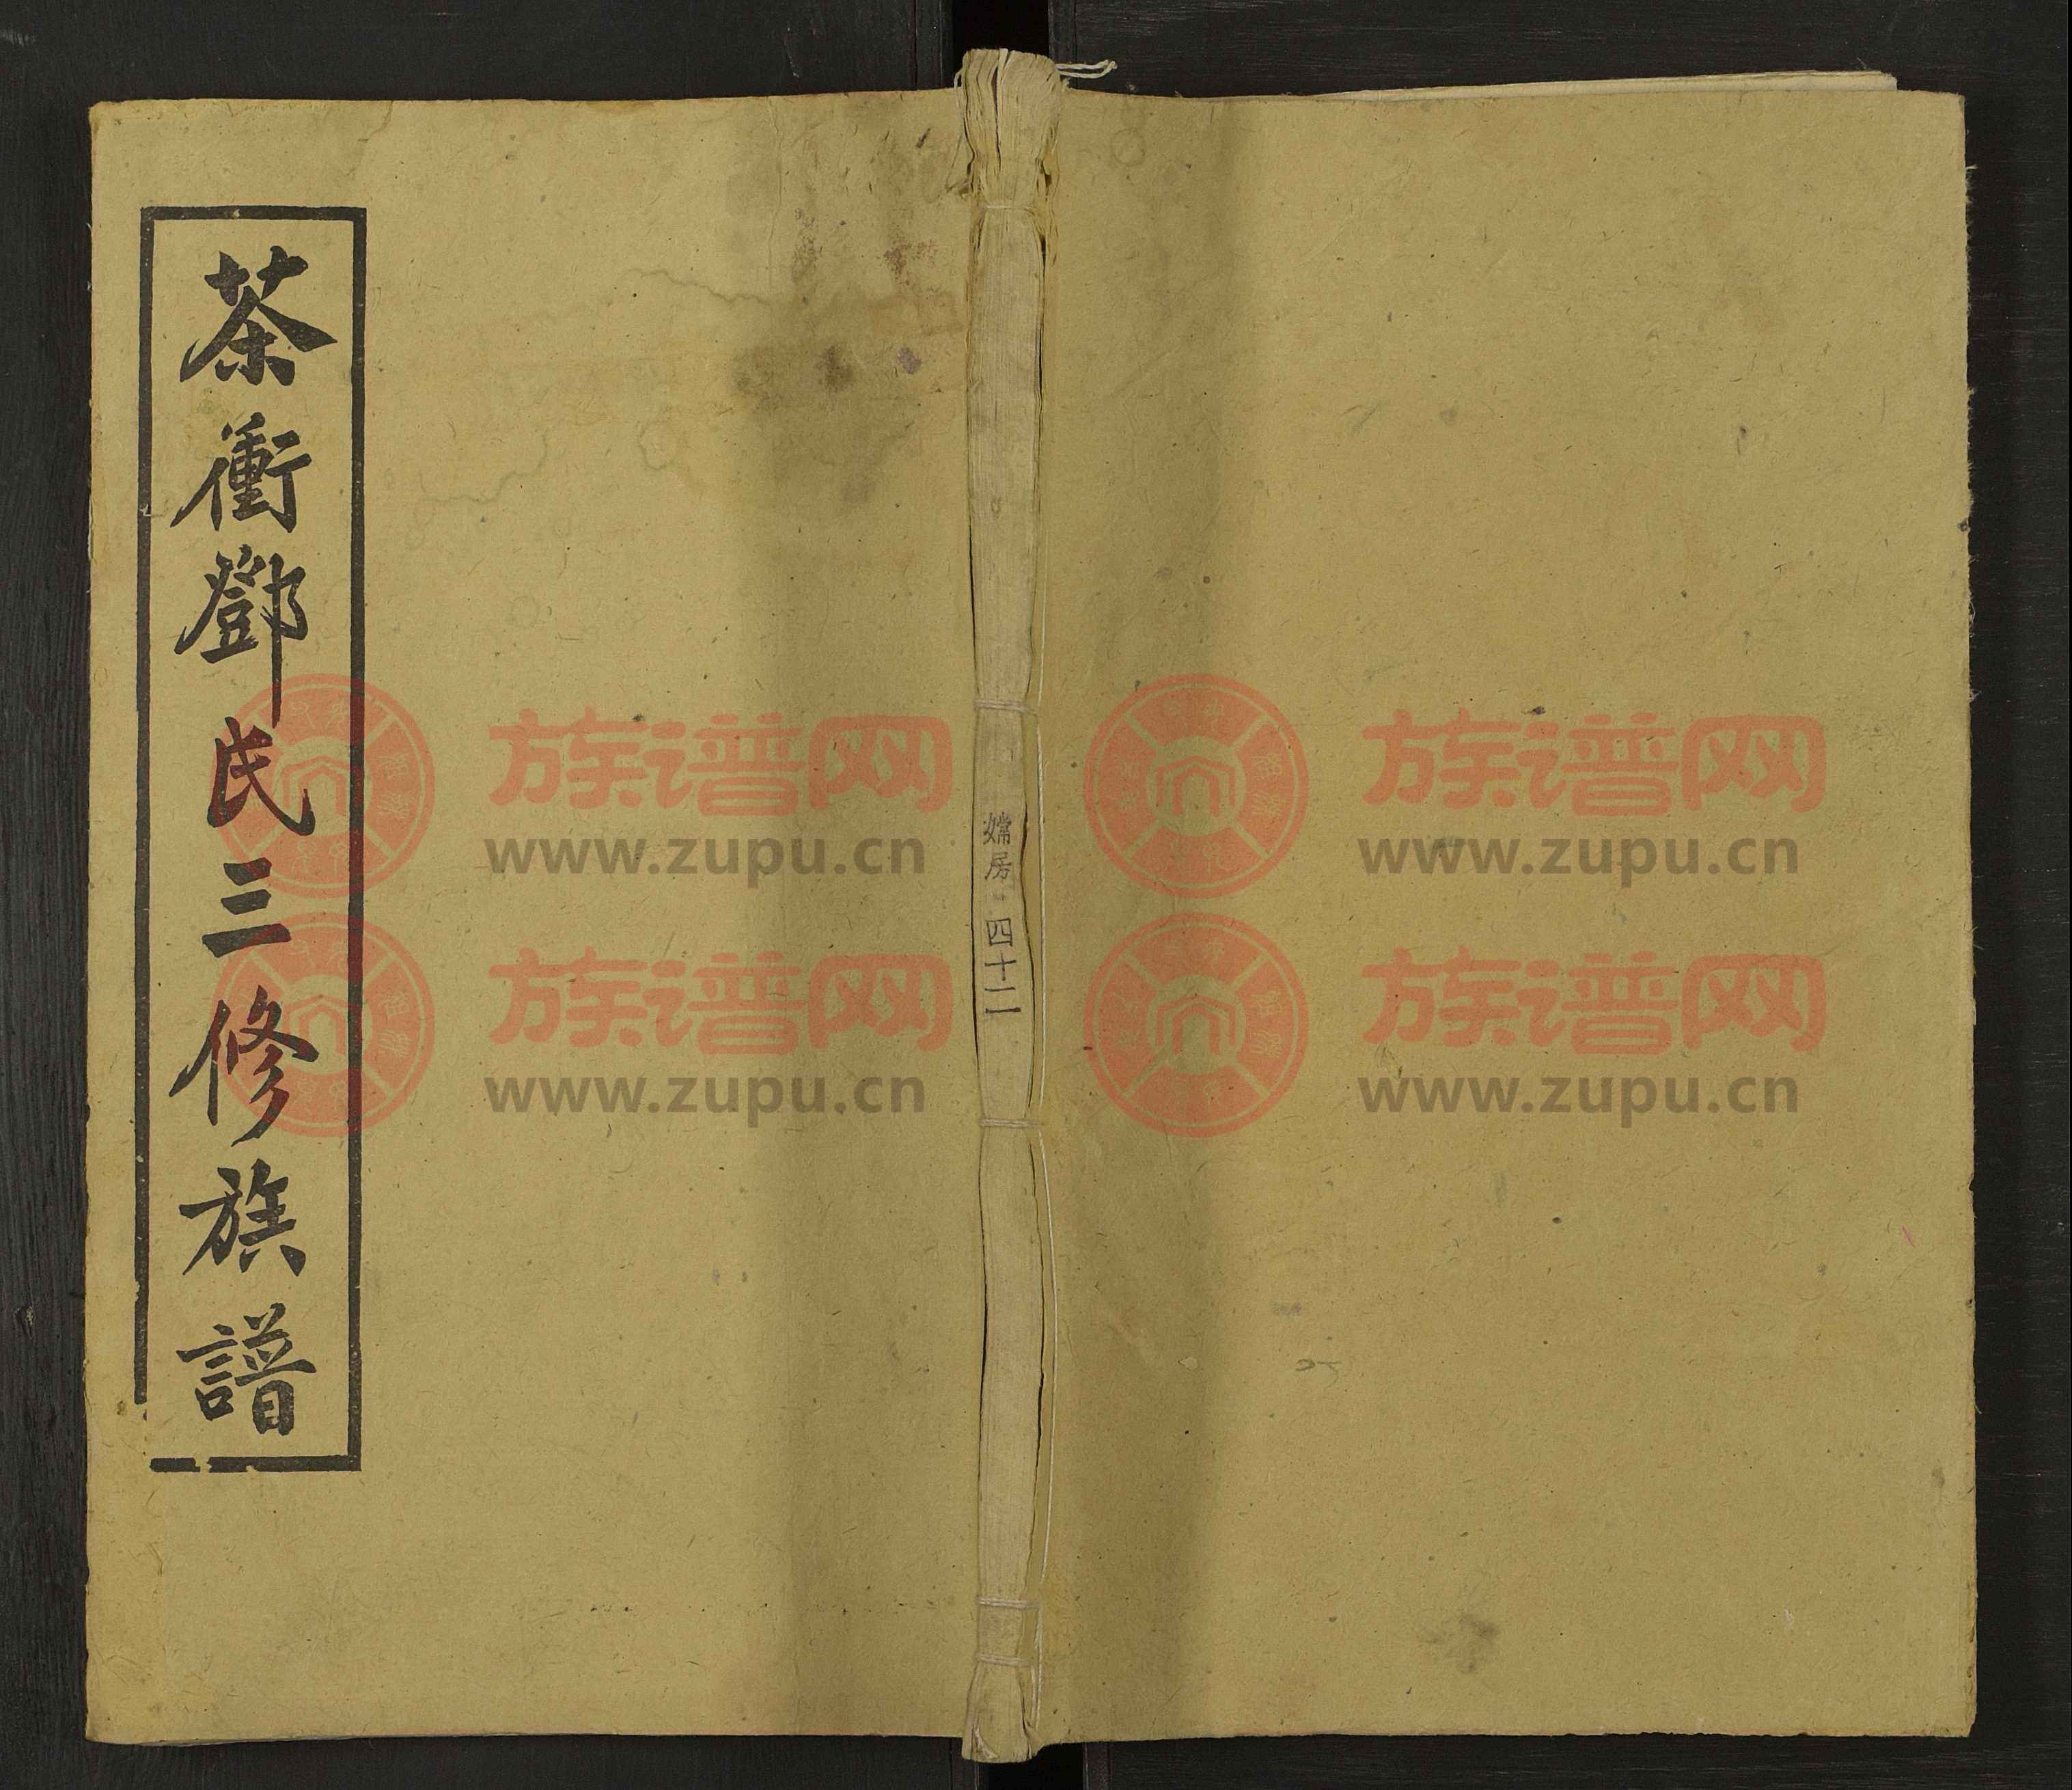 茶衝鄧氏三修族譜
嫦房 四十二
族谱网
www.zupu.cn
族谱网
www.zupu.cn
族谱网
www.zupu.cn
族谱网
www.zupu.cn